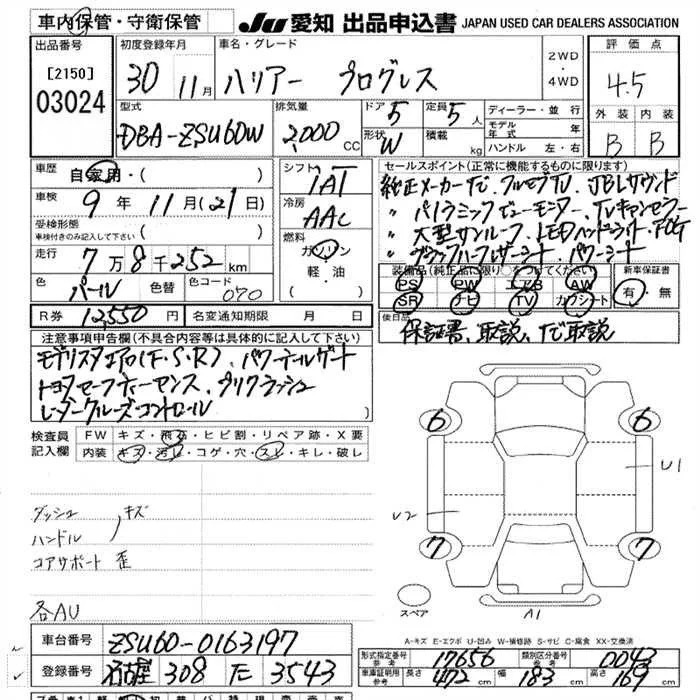 車内保管・守衛保管
JU 愛知 出品申込書 JAPAN USED CAR DEALERS ASSOCIATION
出品番号
[2150]
03024
初度登録年月
30 11月
車名・グレード
ハリアー プログレス
2WD
・
4WD
評価点
4.5
外装 内装
B B
型式
DBA-ZSU60W
排気量
2,000 CC
ドア 5
形状 W
定員 5 人
積載 kg
ディーラー・並行
モデル年式 年
ハンドル 左・右
車歴 自家用・( )
車検 9年 11月(21日)
受検形態
車検付きのみ記入して下さい ( )
走行 7万8千252km
色 パール 色替 色コード 070
シフト
IAT
冷房
AAC
燃料
ガソリン
軽・油
( )
セールスポイント(正常に機能するものに限ります)
純正メーカーナビ、フルセグTV、JBLサウンド
〃 パノラミックビューモニター、TVキャンセラー
〃 大型サンルーフ、LEDヘッドライト、FOG
〃 ブラックハーフレザーシート、パワーシート
装備品(純正品に限り○をつけてください)
PS PW エアB AW
SR ナビ TV カワシート
新車保証書
有・無
R券 12,550円 名変通知期限 月 日
後日品
保証書、取説、ナビ取説
注意事項申告欄(不具合内容等は具体的に記入して下さい)
モデリスタエアロ(F・S・R)、パワーテールゲート
トヨタセーフティーセンス、プリクラッシュ
レーダークルーズコントロール
検査員記入欄
FW キズ・飛石・ヒビ割・リペア跡・X要
内装 キズ・汚レ・コゲ・穴・スレ・キレ・破レ
ダッシュ
ハンドル
キズ
コアサポート 歪
各AU
6 6
U1
U2
7 7
スペア
A1
A-キズ E-エクボ U-凹み W-補修跡 S-サビ C-腐食 XX-交換済
車台番号 ZSU60-0163197
登録番号 名古屋 308 た 3543
形式指定番号 参考 17656 類別区分番号 参考 0043
車庫証明用 参考 長さ 472cm 幅 183cm 高さ 169cm